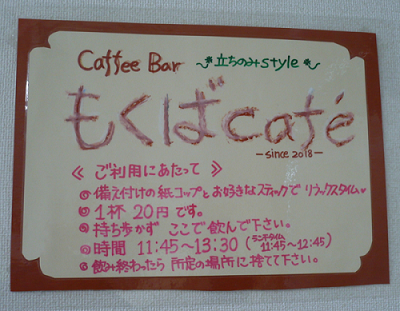 Caffee Bar ～立ちのみstyle～
もくばcafé
－since 2018－
≪ ご利用にあたって ≫
◎備え付けの紙コップとお好きなスティックで リラックスタイム♥
◎1杯 20円です。
◎持ち歩かず ここで飲んで下さい。
◎時間 11:45～13:30 (ランチタイム 11:45～12:45)
◎飲み終わったら 所定の場所に捨てて下さい。